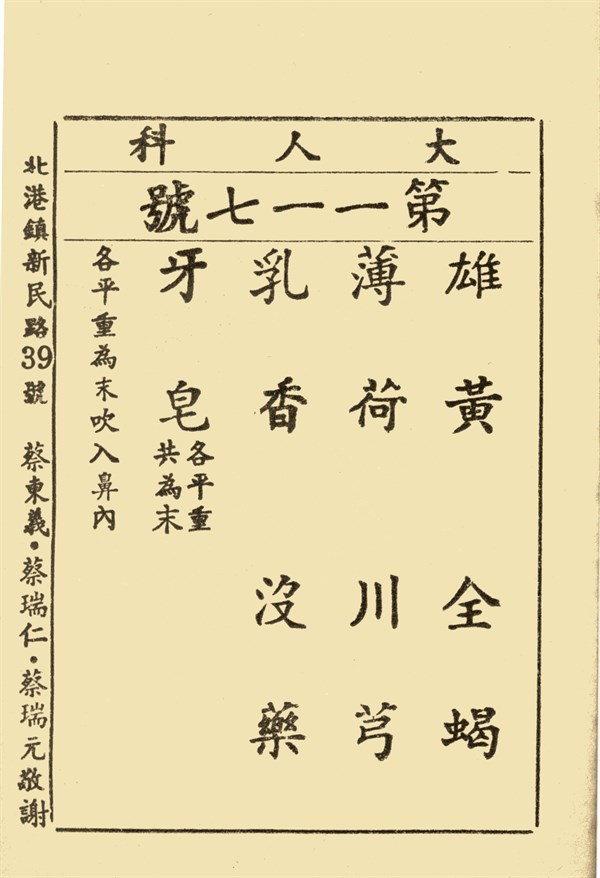 大人科
第一一七號
雄黃 全蝎
薄荷 川芎
乳香 沒藥
牙皂 各平重共為末
各平重為末吹入鼻內
北港鎮新民路39號 蔡東義・蔡瑞仁・蔡瑞元敬謝